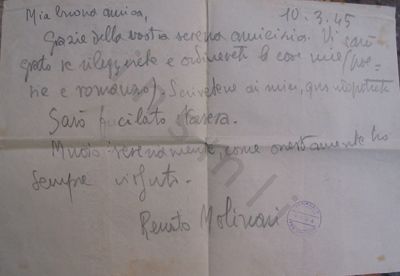 Mia buona amica,
10.3.45
Grazie della vostra serena amicizia. Vi sarò
grato se rileggerete e ordinerete le cose mie (poe-
sie e romanzo). Scrivetene ai miei, quando potrete
Sarò fucilato stasera.
Muoio serenamente, come onestamente ho
sempre vissuto.
Renato Molinari